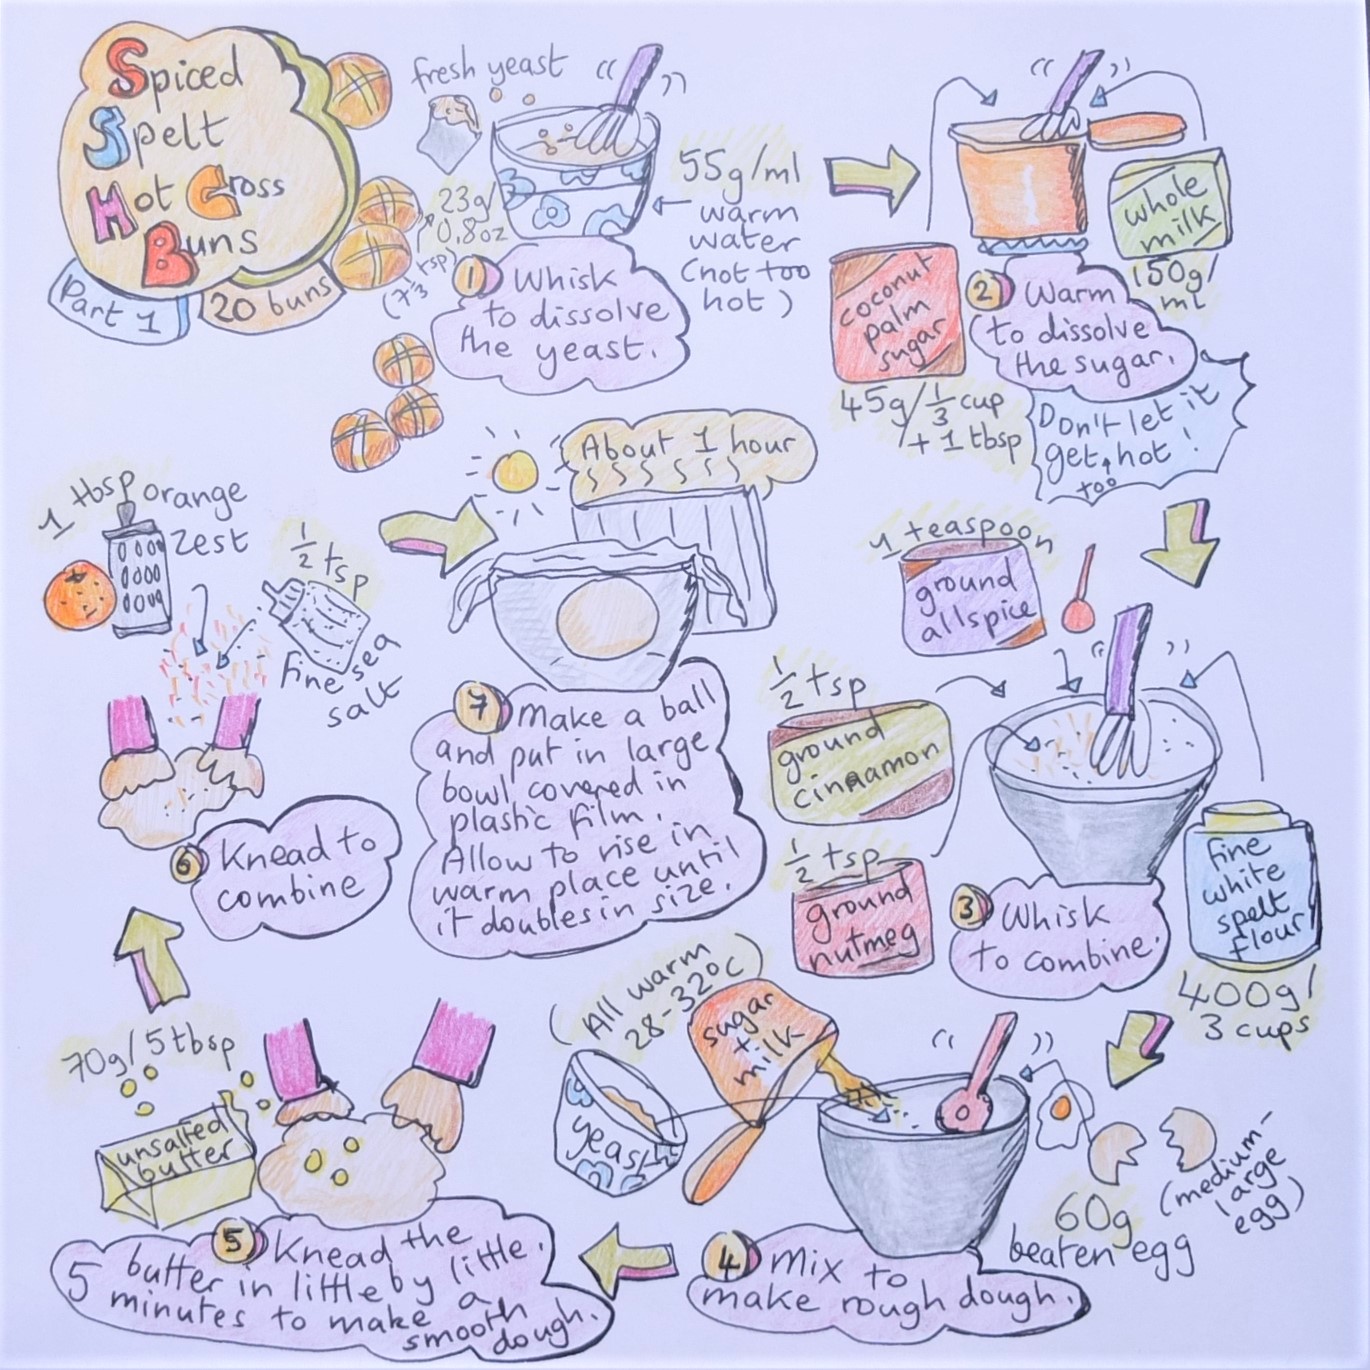 Spiced
Spelt
Hot Cross
Buns
Part 1
20 buns
fresh yeast
23g/
0.8oz
tsp)
55g/ml
warm
water
(not too
hot)
1 Whisk
to dissolve
the yeast.
coconut
palm
sugar
45g/1/3 cup
+ 1 tbsp
whole
milk
150g/
ml
2 Warm
to dissolve
the sugar.
Don't let it
get too hot!
1 teaspoon
ground
allspice
1/2 tsp
ground
cinnamon
1/2 tsp
ground
nutmeg
3 Whisk
to combine.
fine
white
spelt
flour
400g/
3 cups
(All warm
28-32°C)
yeast
sugar
+
milk
60g
beaten egg
(medium-
large
egg)
4 Mix to
make rough dough.
70g/5tbsp
unsalted
butter
5 Knead the
butter in little by little.
5 minutes to make a
smooth
dough.
1 tbsp orange
zest
1/2 tsp
fine sea
salt
6 Knead to
combine
About 1 hour
7 Make a ball
and put in large
bowl covered in
plastic film.
Allow to rise in
warm place until
it doubles in size.